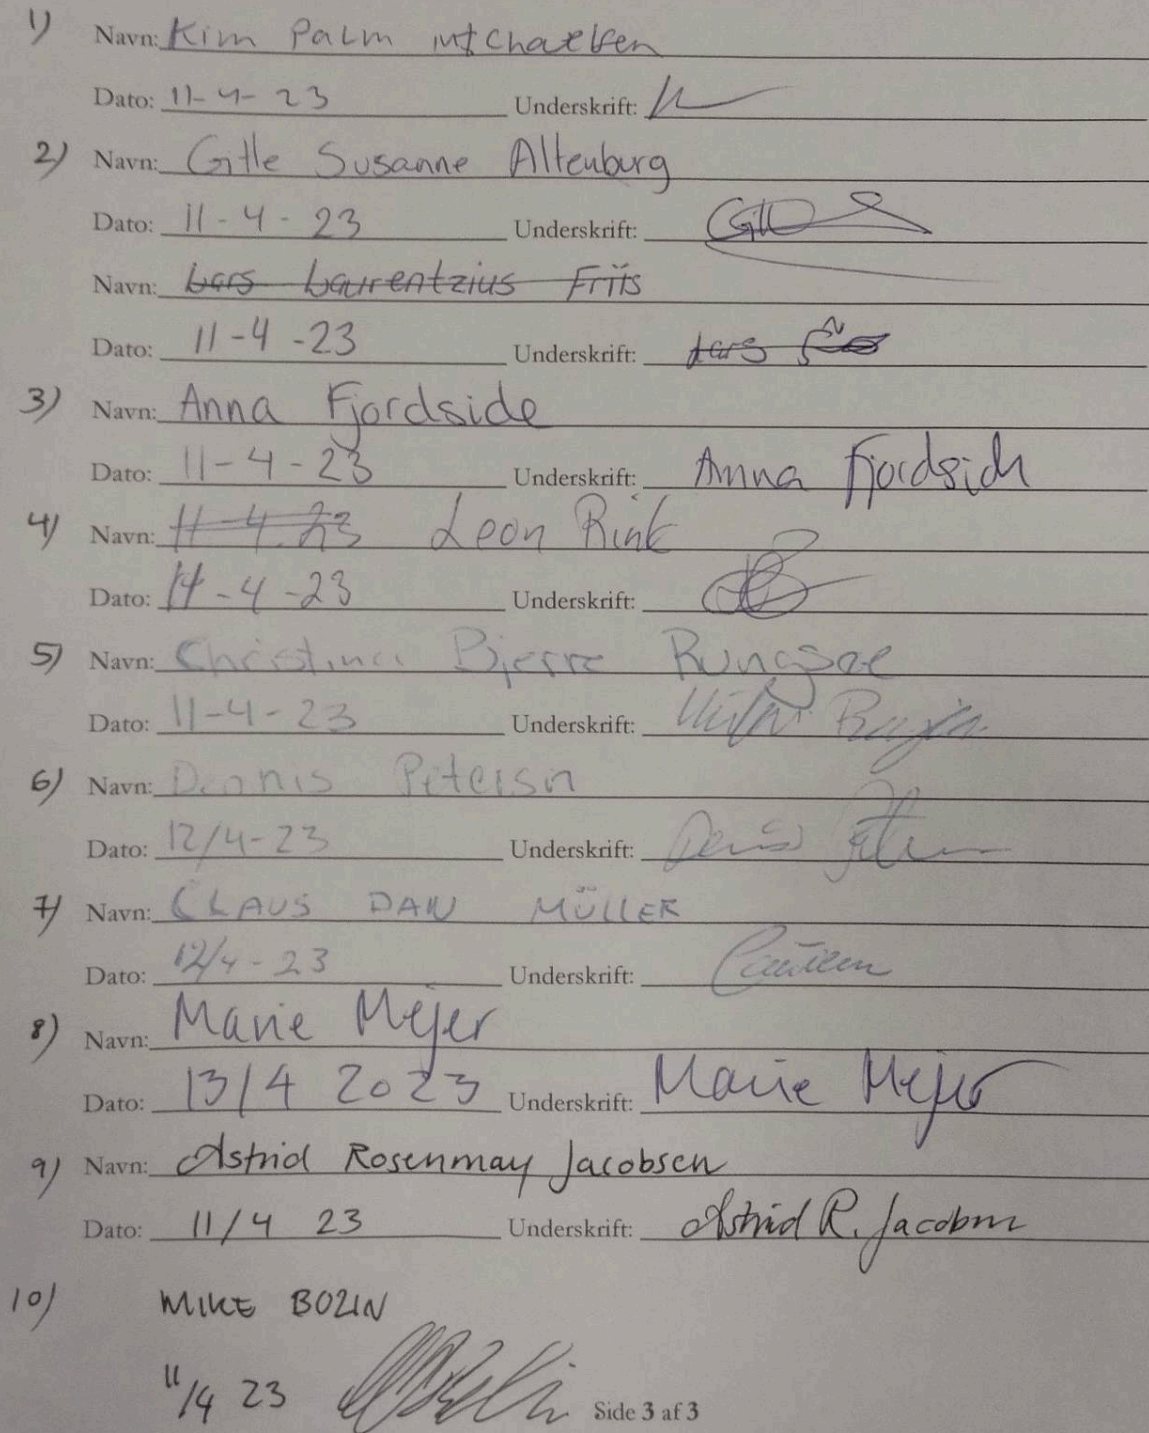 1) Navn: Kim Palm Michaelsen
Dato: 11-4-23 Underskrift:
2) Navn: Gitte Susanne Altenburg
Dato: 11-4-23 Underskrift: Gitte
Navn: Lars Laurentzius Friis
Dato: 11-4-23 Underskrift: Lars
3) Navn: Anna Fjordside
Dato: 11-4-23 Underskrift: Anna Fjordside
4) Navn: 11-4-23 Leon Rink
Dato: 11-4-23 Underskrift:
5) Navn: Christina Bjerre
Dato: 11-4-23 Underskrift:
6) Navn: Dennis Petersen
Dato: 12/4-23 Underskrift: Dennis
7) Navn: CLAUS DAN MÜLLER
Dato: 12/4-23 Underskrift:
8) Navn: Marie Mejer
Dato: 13/4 2023 Underskrift: Marie Mejer
9) Navn: Astrid Rosenmay Jacobsen
Dato: 11/4 23 Underskrift: Astrid R. Jacobsen
10) MIKE BOZIN
11/4 23 Side 3 af 3